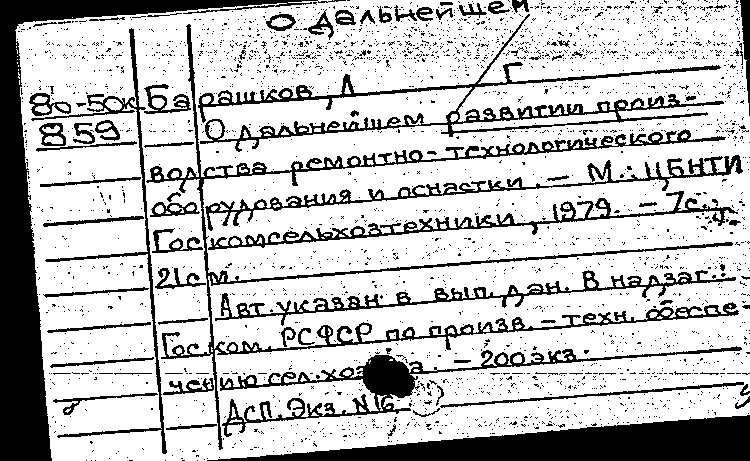 О дальнейшем
80-50к Барашков, Л Г
859 О дальнейшем развитии произ-
водства ремонтно-технологического
оборудования и оснастки. - М.: ЦБНТИ
Госкомсельхозтехники, 1979. - 7с.;
21см.
Авт. указан в вып. дан. В надзаг.:
Гос.ком. РСФСР по произв.-техн. обеспе-
чению сел.хоз-ва. - 200экз.
ДСП. Экз. N 16